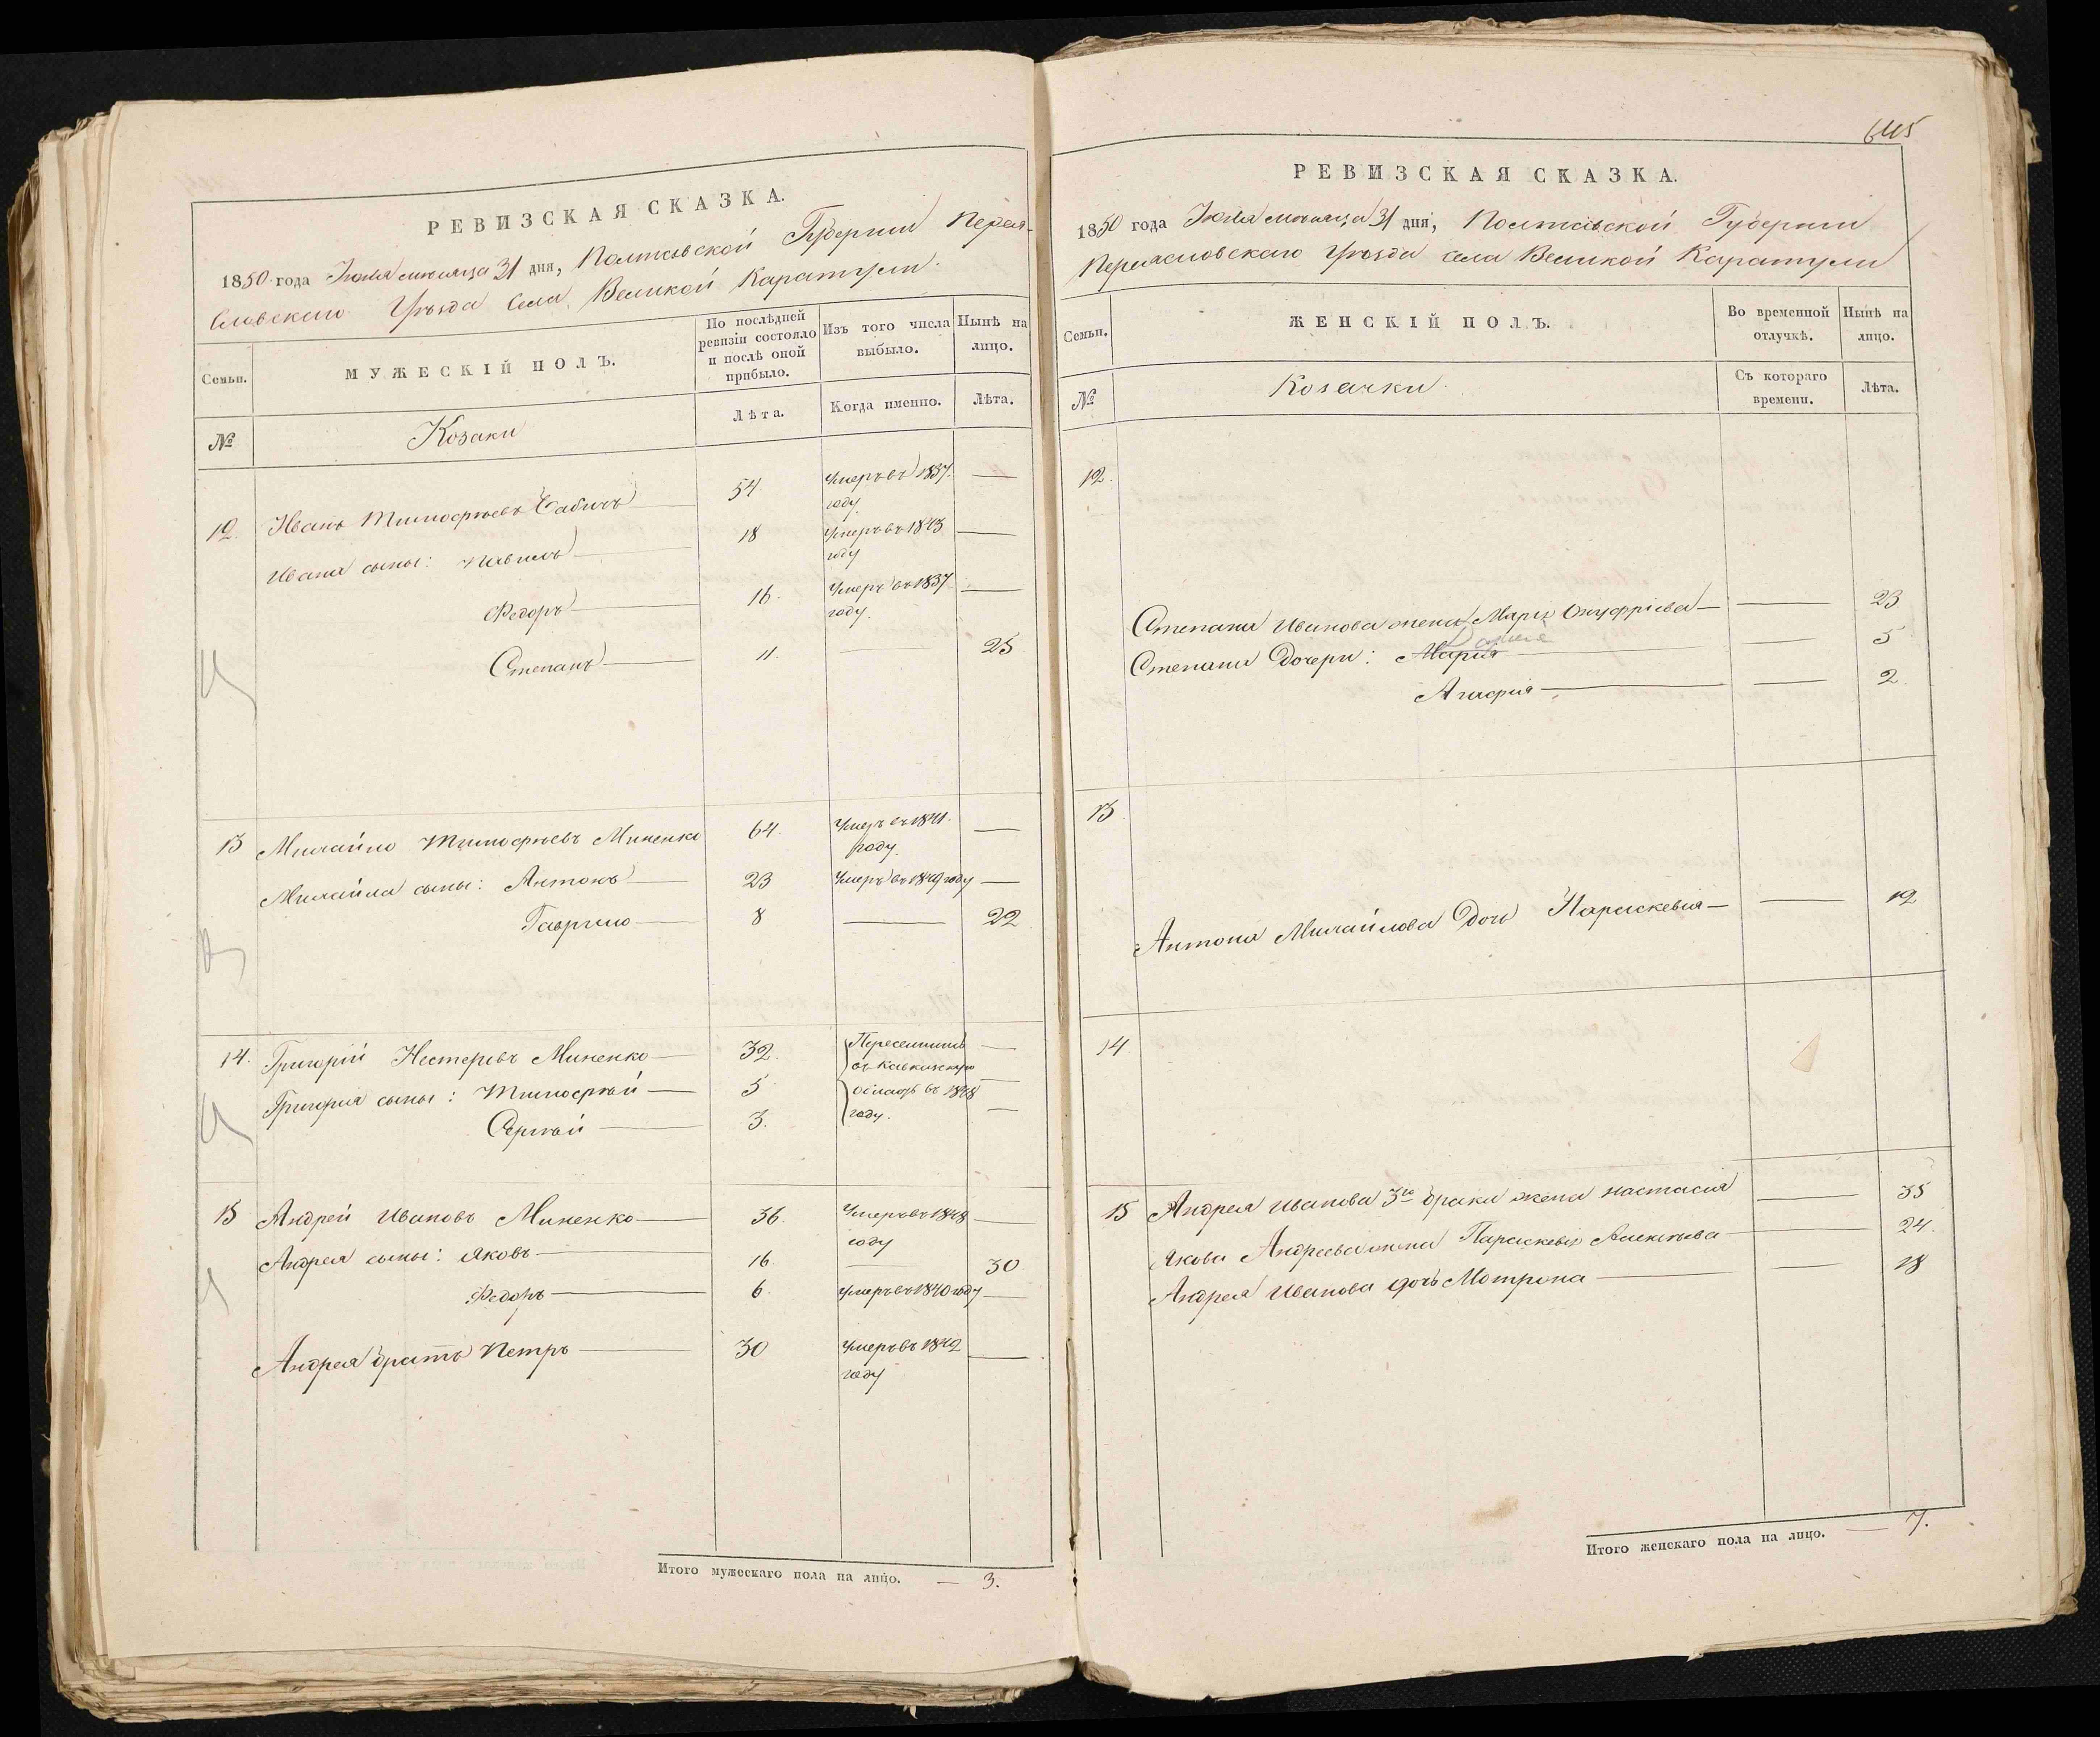 РЕВИЗСКАЯ СКАЗКА.
1850 года Іюля мѣсяца 31 дня, Полтавской Губерніи Перея-
славскаго Уѣзда Села Великой Каратули.
Семьи.
МУЖЕСКІЙ ПОЛЪ.
По послѣдней ревизіи состояло и послѣ оной прибыло.
Изъ того числа выбыло.
Нынѣ на лицо.
№
Козаки
Лѣта.
Когда именно.
Лѣта.
12. Иванъ Тимофѣевъ 54. Умеръ въ 1837. году. —
Ивана сыны: Павелъ — 18 Умеръ въ 1843 году —
Федоръ — 16. Умеръ въ 1837 году. —
Степанъ — 11 — 25
13 Михайло Тимофѣевъ Миненко 64. Умеръ въ 1841. году. —
Михайла сыны: Антонъ — 23 Умеръ въ 1849 году —
Гаврило — 8 — 22
14. Григорій Нестеровъ Миненко — 32. Переселились —
въ Кавказскую
Григорія сыны: Тимофѣй — 5 область въ 1848 —
Сергѣй — 3. году. —
15 Андрей Ивановъ Миненко — 36. Умеръ въ 1848 году —
Андрея сыны: Яковъ — 16. — 30.
Федоръ — 6. Умеръ въ 1840 году —
Андрея братъ Петръ — 30 Умеръ въ 1842 году —
Итого мужескаго пола на лицо. — 3.
645
РЕВИЗСКАЯ СКАЗКА.
1850 года Іюля мѣсяца 31 дня, Полтавской Губерніи
Переясловскаго Уѣзда села Великой Каратули
Семьи.
ЖЕНСКІЙ ПОЛЪ.
Во временной отлучкѣ.
Нынѣ на лицо.
№
Козачки.
Съ котораго времени.
Лѣта.
12.
Степана Иванова жена Марія Онуфріева — — 23
Степана Дочери: Марія — — 5
Агафія — — 2
13.
Антона Михайлова Дочь Параскевія — — 12
14
15 Андрея Иванова 3го брака жена Настасія — 35
Якова Андреева жена Параскевія Алексѣева — — 24.
Андрея Иванова дочь Мотрона — — 18
Итого женскаго пола на лицо. — 7.